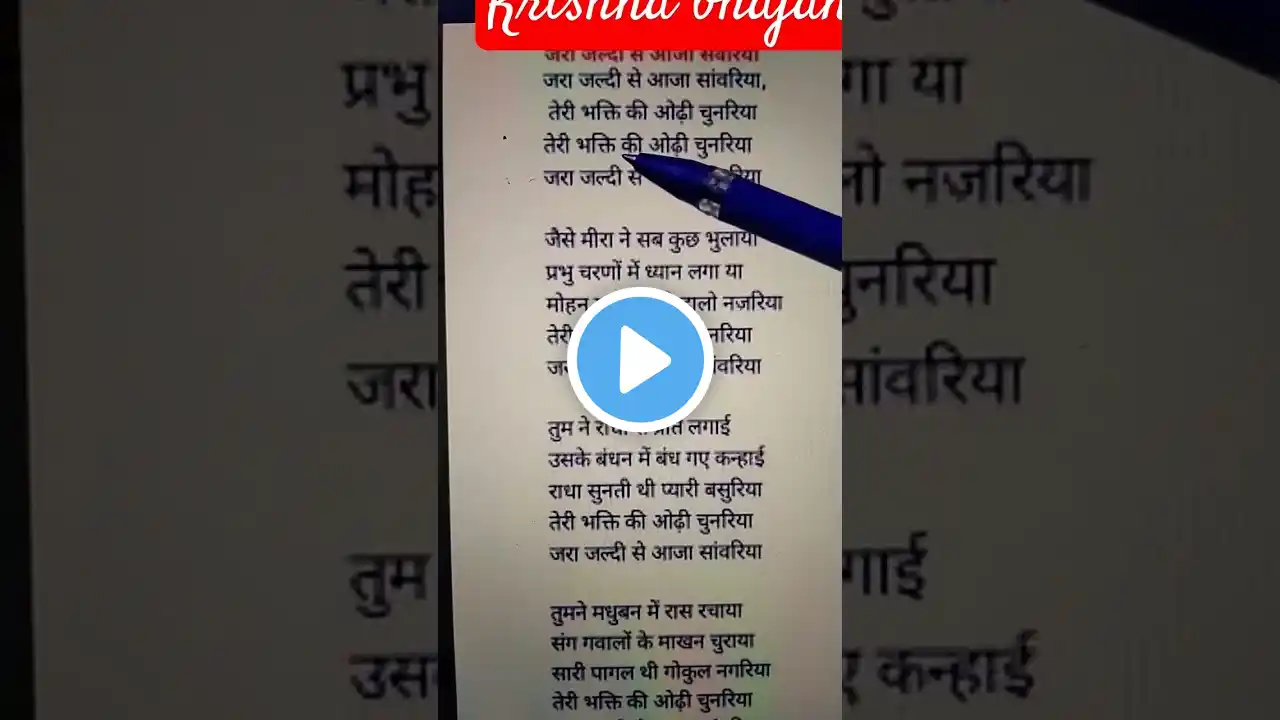 Krishna bhajan
जरा जल्दी से आजा सवारिया
जरा जल्दी से आजा सांवरिया,
तेरी भक्ति की ओढ़ी चुनरिया
तेरी भक्ति की ओढ़ी चुनरिया
जरा जल्दी से
जैसे मीरा ने सब कुछ भुलाया
प्रभु चरणों में ध्यान लगा या
मोहन नज़रिया
तुम ने लगाई
उसके बंधन में बंध गए कन्हाई
राधा सुनती थी प्यारी बसुरिया
तेरी भक्ति की ओढ़ी चुनरिया
जरा जल्दी से आजा सांवरिया
तुमने मधुबन में रास रचाया
संग गवालों के माखन चुराया
सारी पागल थी गोकुल नगरिया
तेरी भक्ति की ओढ़ी चुनरिया